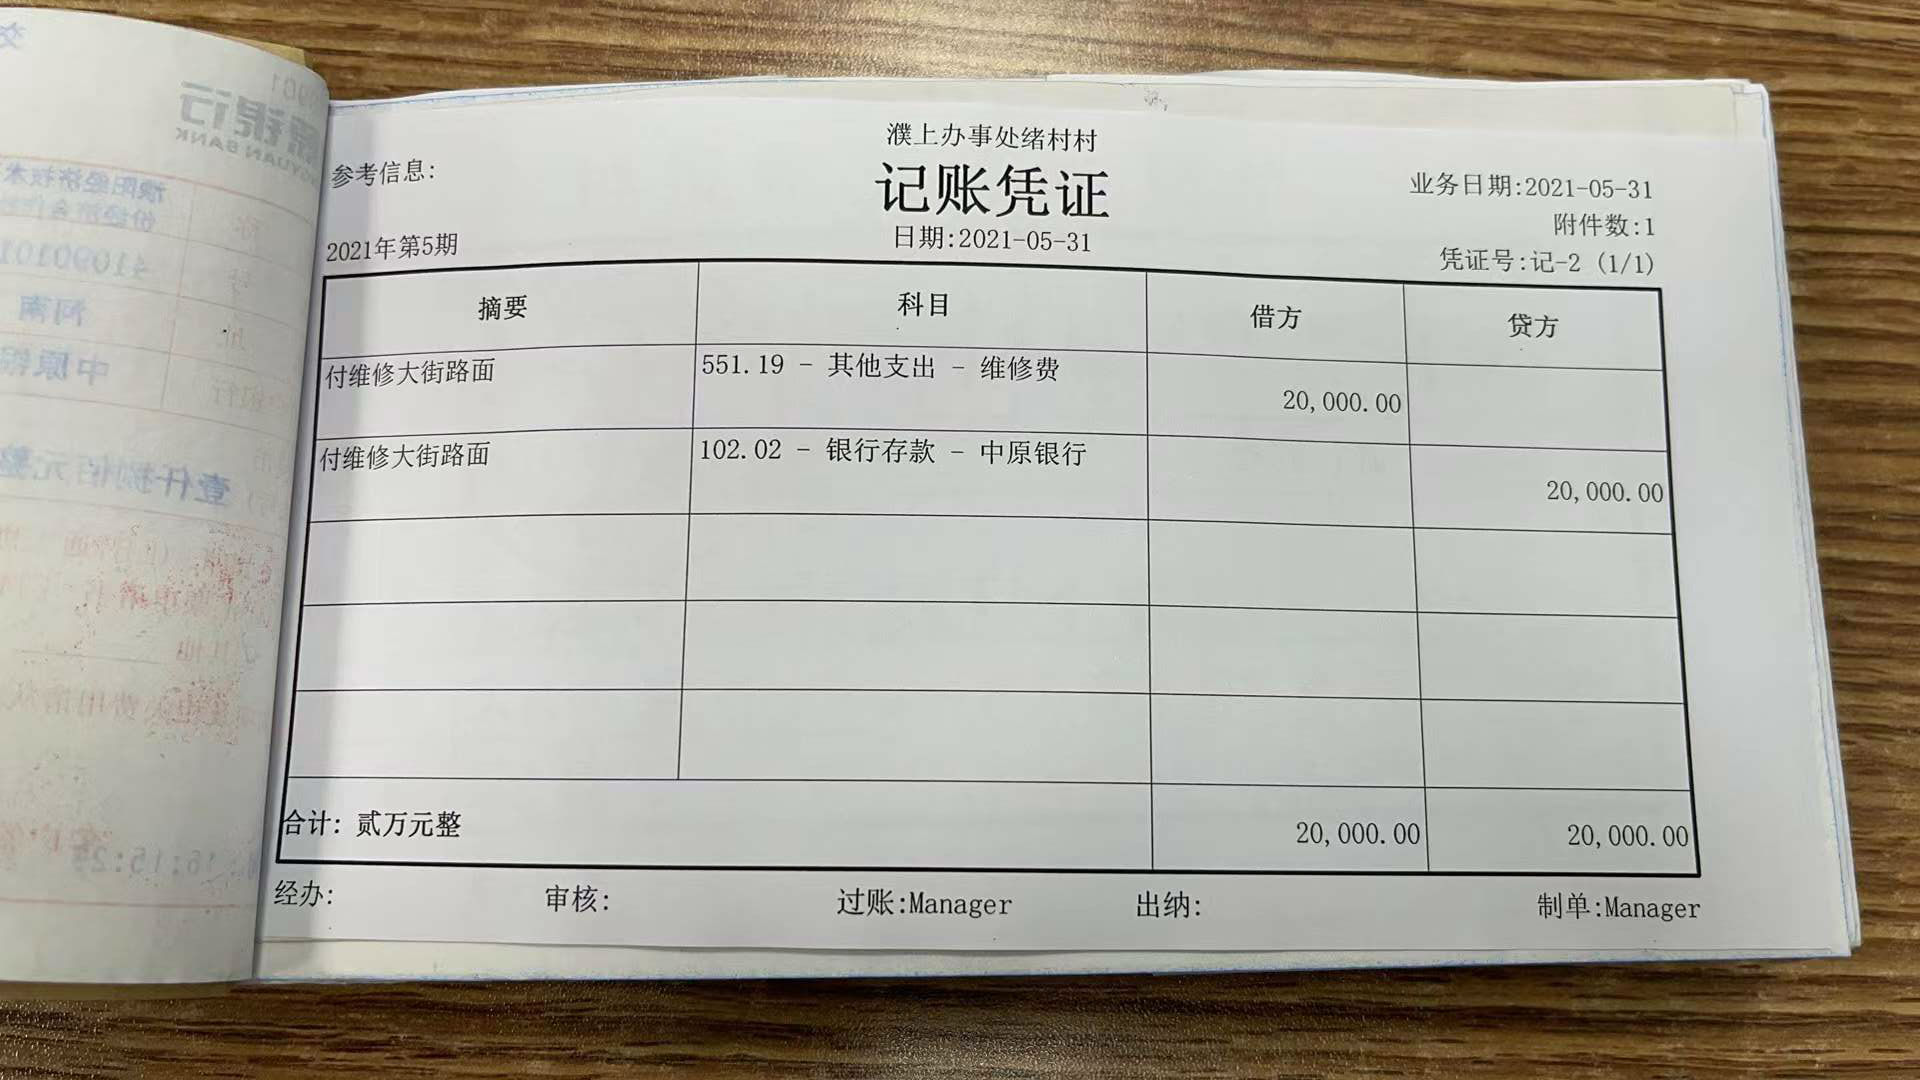 濮上办事处绪村村
参考信息:
记账凭证
业务日期:2021-05-31
附件数:1
2021年第5期
日期:2021-05-31
凭证号:记-2 (1/1)
摘要 科目 借方 贷方
付维修大街路面 551.19 - 其他支出 - 维修费 20,000.00
付维修大街路面 102.02 - 银行存款 - 中原银行 20,000.00
合计: 贰万元整 20,000.00 20,000.00
经办: 审核: 过账:Manager 出纳: 制单:Manager